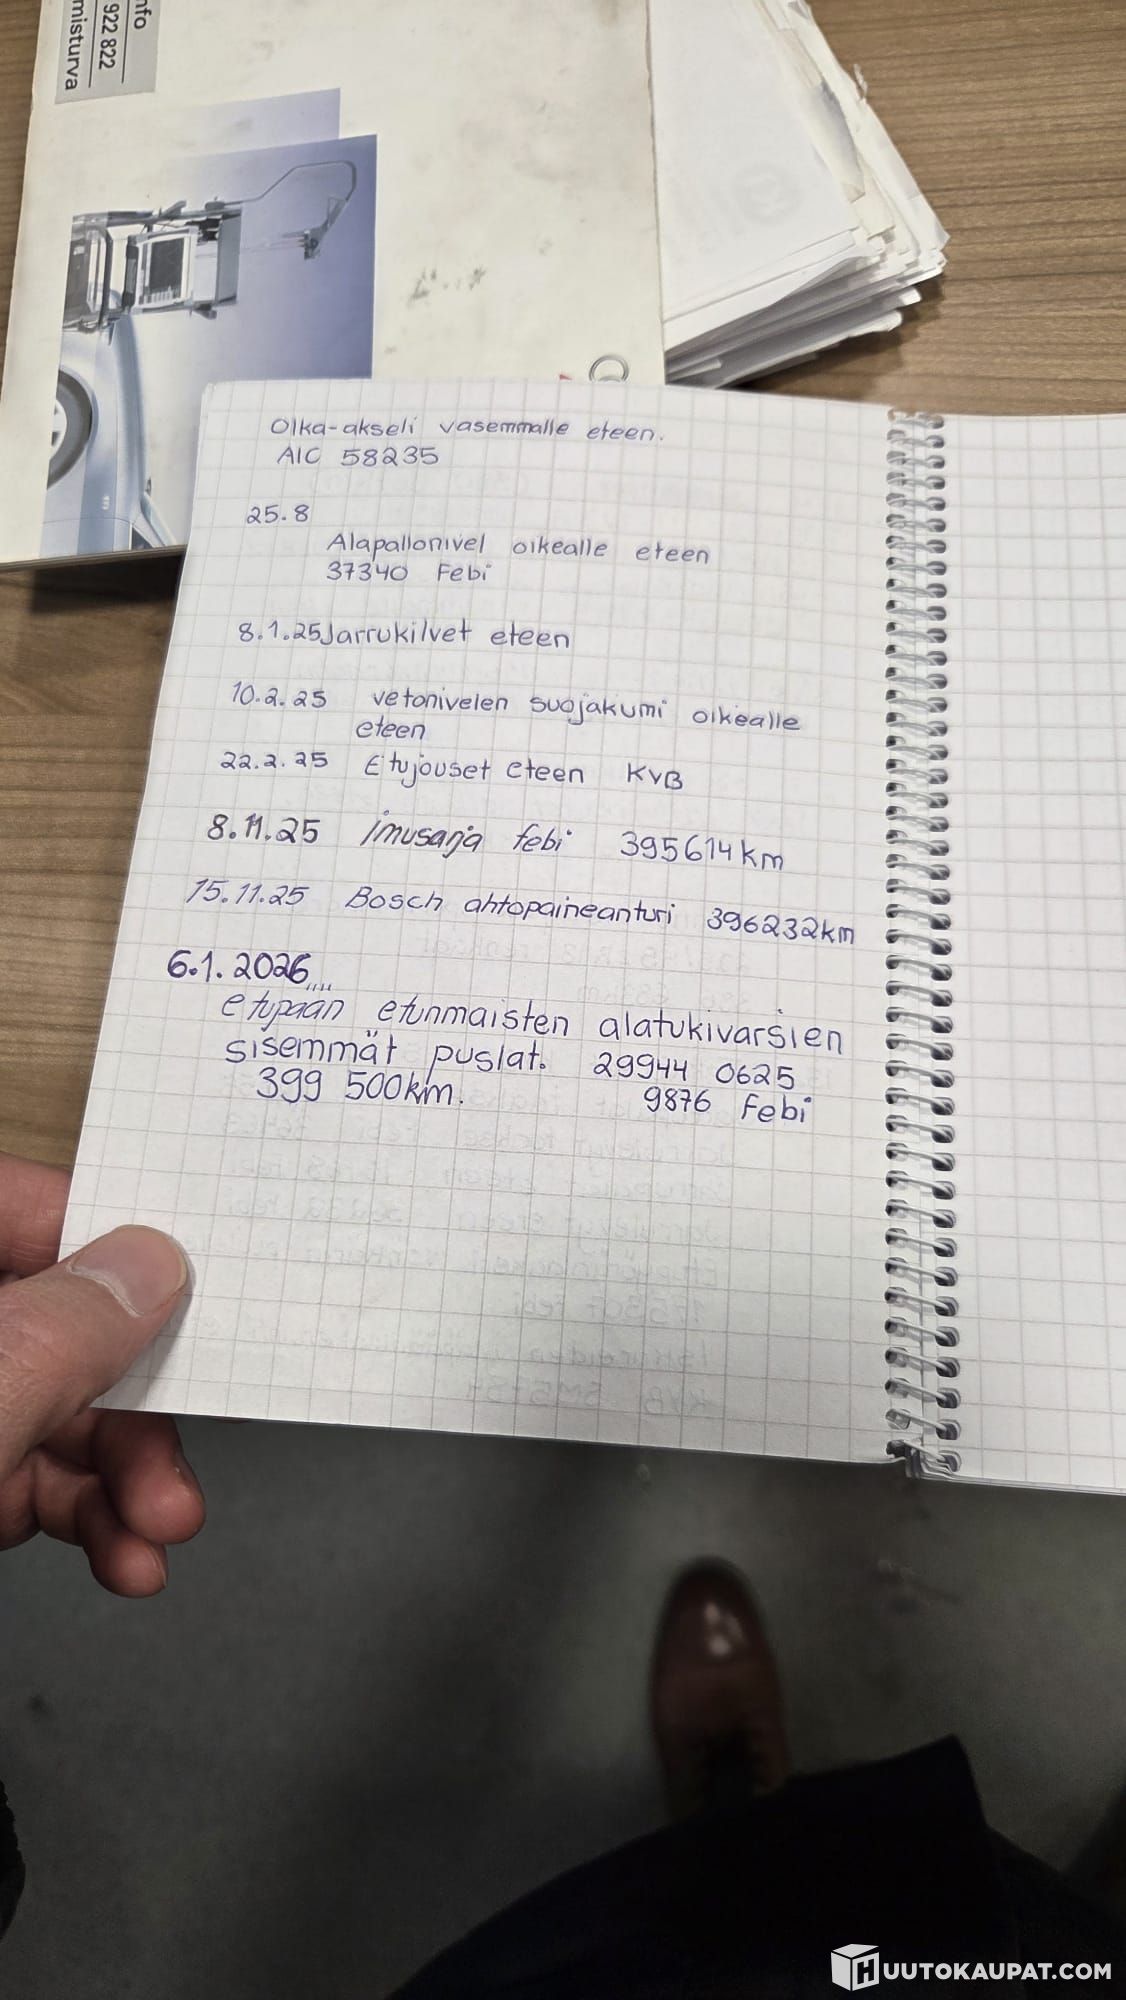 nfo
922 822
misturva
Olka-akseli vasemmalle eteen.
AIC 58235
25.8
Alapallonivel oikealle eteen
37340 Febi
8.1.25 Jarrukilvet eteen
10.2.25 vetonivelen suojakumi oikealle
eteen
22.2.25 Etujouset eteen KVB
8.11.25 imusarja febi 395614km
15.11.25 Bosch ahtopaineanturi 396232km
6.1.2026....
etupään etunmaisten alatukivarsien
sisemmät puslat. 29944 0625
399 500km. 9876 Febi
HUUTOKAUPAT.COM